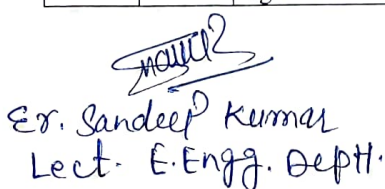 Er. Sandeep Kumar
Lect. E.Engg. Deptt.